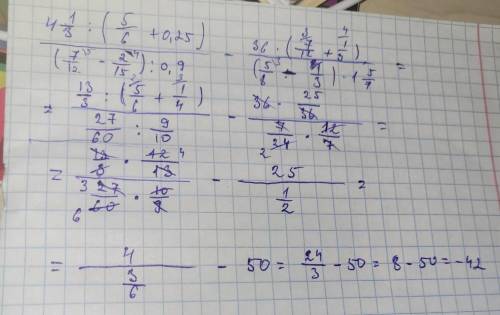 4 1/3 : (5/6 + 0,25) / (7/12 - 2/15) : 0,9 - 36 : (7/12 + 1/5) / (5/8 - 1/3) · 1 5/7 =
= 13/3 : (5/6 + 1/4) / 27/60 : 9/10 - 36 · 25/36 / 7/24 · 12/7 =
= 13/3 · 12/13 / 27/60 · 10/9 - 25 / 1/2 =
= 4 / 3/6 - 50 = 24/3 - 50 = 8 - 50 = -42